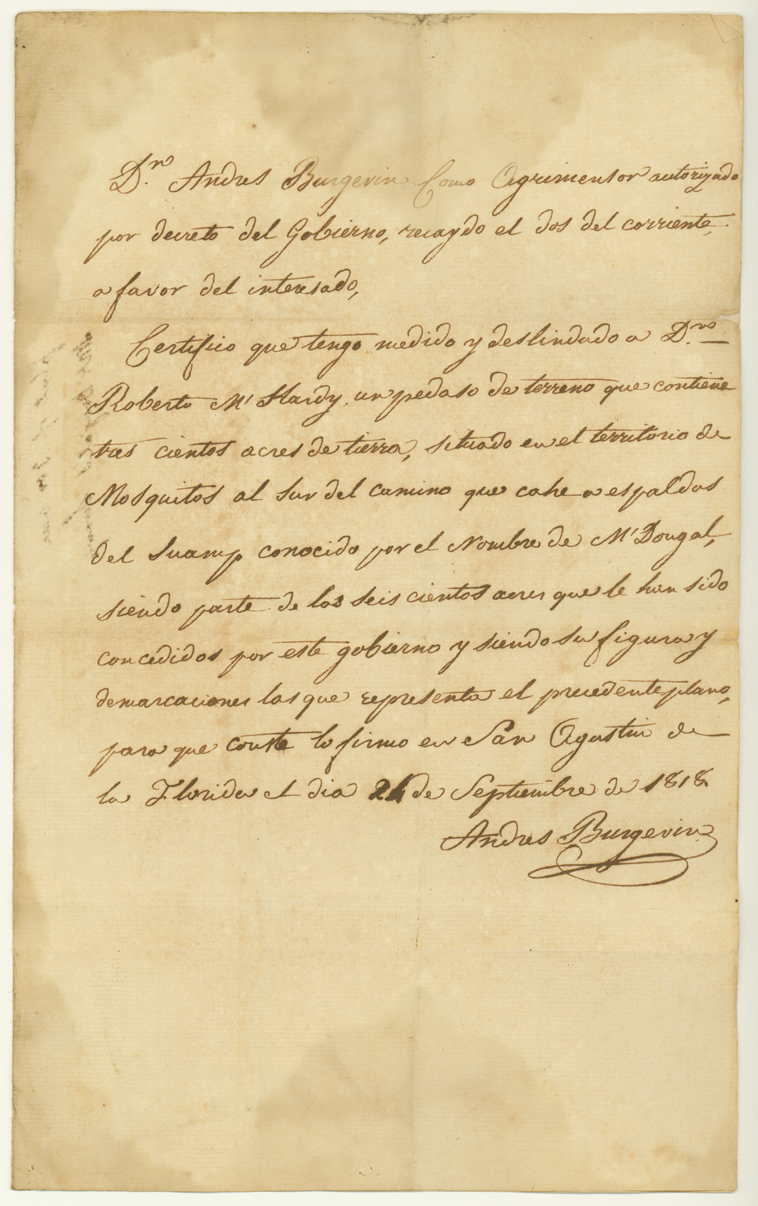 D.ⁿ Andres Burgevin Como Agrimensor autorizado
por decreto del Gobierno, recaydo el dos del corriente
a favor del interesado,
Certifico que tengo medido y deslindado a D.ⁿ
Roberto Mᶜ Hardy un pedaso de terreno que contiene
tres cientos acres de tierra, situado en el territorio de
Mosquitos al sur del camino que cahe a espaldas
del Suamp conocido por el Nombre de Mᶜ Dougal,
siendo parte de los seis cientos acres que le han sido
concedidos por este gobierno y siendo su figura y
demarcaciones las que representa el precedente plano,
para que conste lo firmo en San Agustin de
la Florida el dia 24 de Septiembre de 1818.
Andres Burgevin